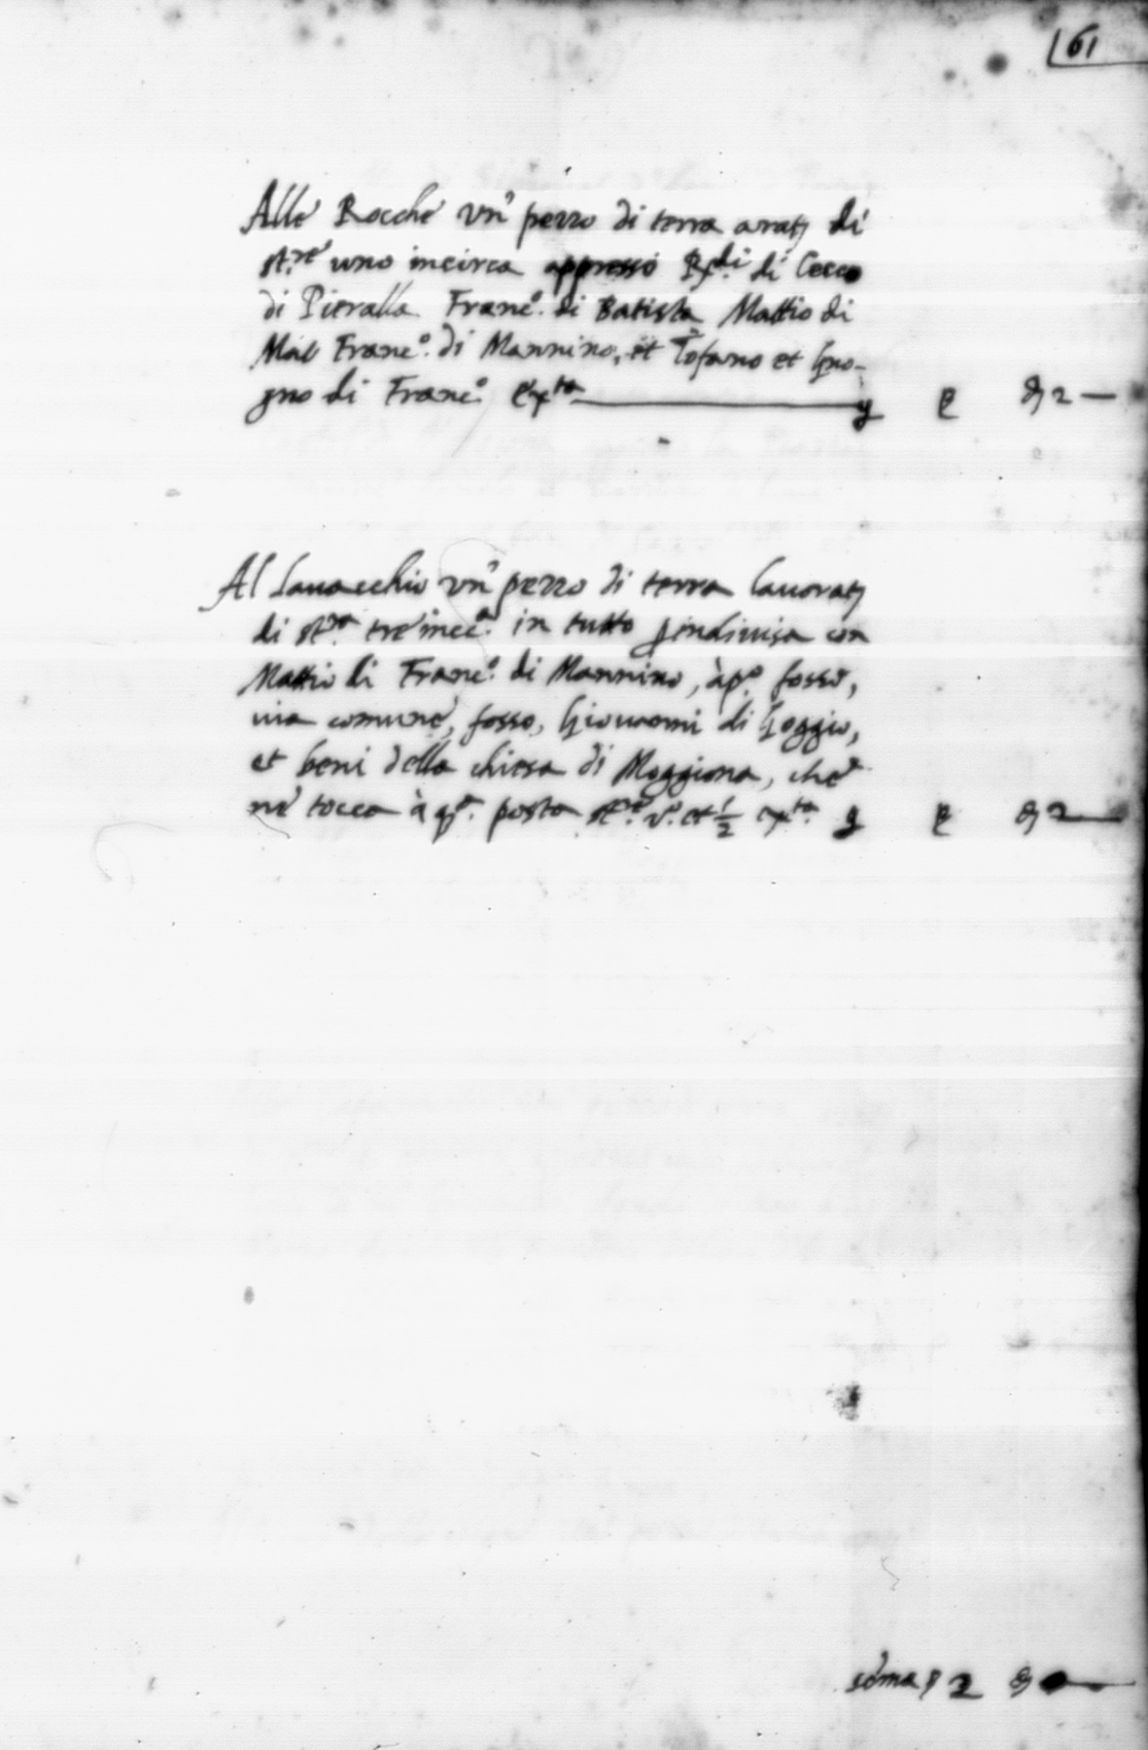 61
Alle Rocche vn pezzo di terra arat.
di st.re uno incirca appresso Rx.di di Cecco
di Pieralla Franc.o di Batista Mattio di
Franc.o di Mannino, et Tofano et Gno-
gno di Franc.o
2 —
Al Lauacchio vn pezzo di terra lauorat.
di st.ra tre inc.a in tutto indiuisa con
Mattio di Franc.o di Mannino, à p.o fosso,
uia comune, fosso, Giouanni di Goggio,
et beni della chiesa di Moggiona, che
ne tocca à q.a posta st.re v.o et 1/2
2
soma 2